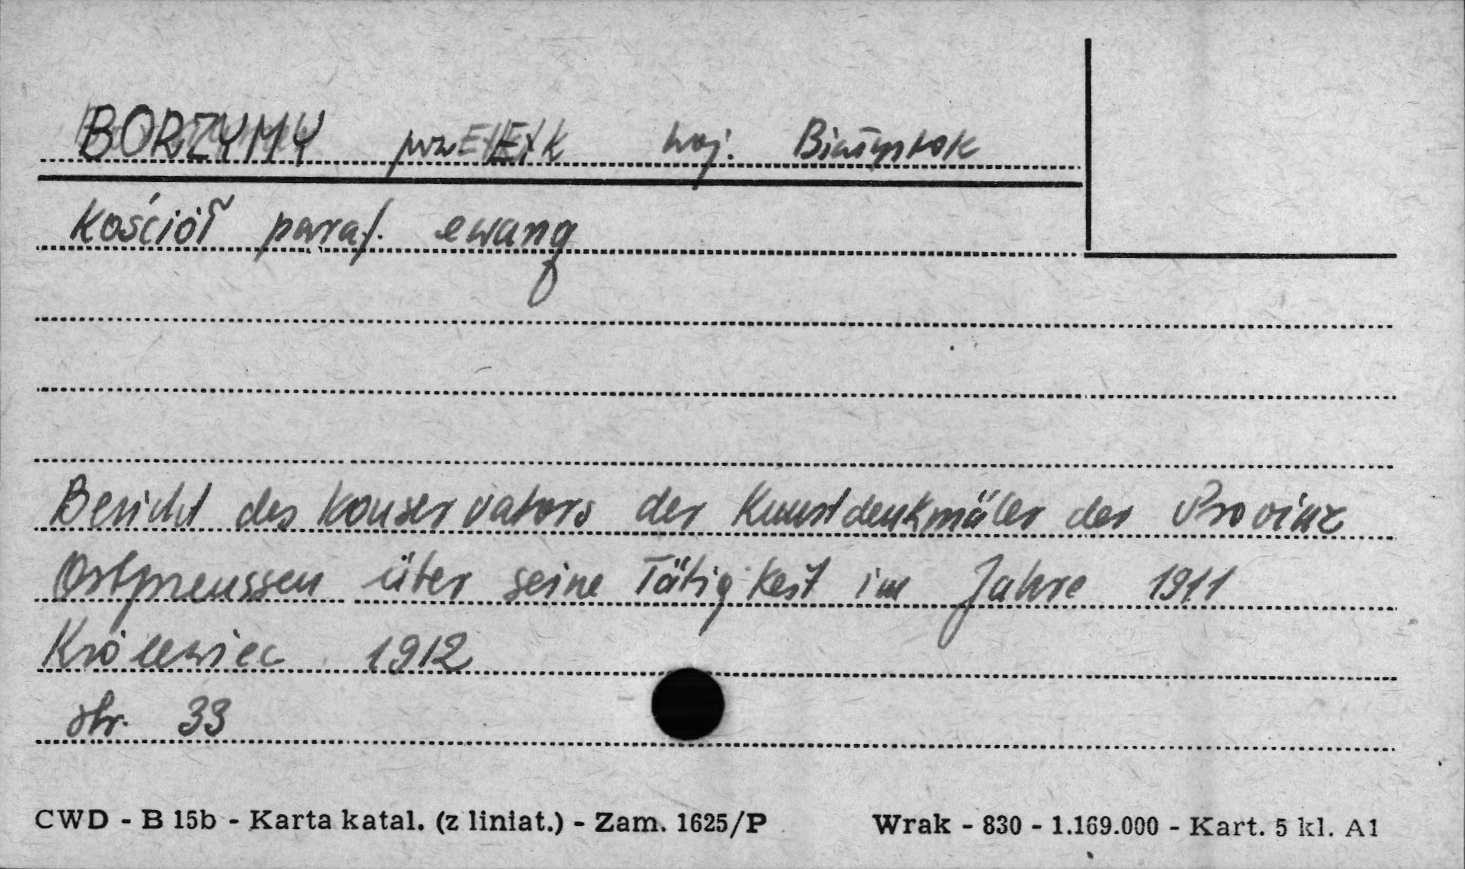 BORZYMY pow EŁK woj. Białystok
Kościół paraf. ewang
Bericht des Konservators der Kunstdenkmäler der Provinz
Ostpreussen über seine Tätigkeit im Jahre 1911
Królewiec 1912
str. 33
CWD - B 15b - Karta katal. (z liniat.) - Zam. 1625/P Wrak - 830 - 1.169.000 - Kart. 5 kl. A1